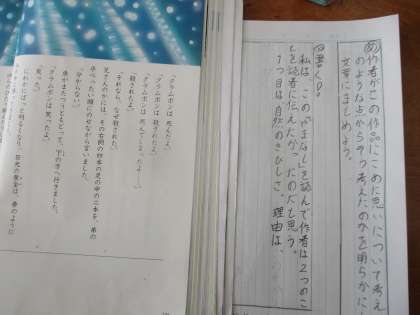 め作者がこの作品にこめた思いについて考え
のような点からそう考えたのかを明らかに
文章にまとめよう。
書く
私は、この「やまなし」を読んで作者は2つのこ
とを読者に伝えたかったのだと思う。
1つ目は、自然のきびしさ。理由は、
「クラムボンは 死んだよ。」
「クラムボンは 殺されたよ。」
「クラムボンは 死んでしまったよ……。」
「殺されたよ。」
「それなら、なぜ殺された。」
兄さんのかには、その右側の四本の足の中の二本を、弟の
平べったい頭にのせながら言いました。
「分からない。」
魚がまたつうともどって、下の方へ行きました。
「クラムボンは 笑ったよ。」
「笑った。」
にわかにぱっと明るくなり、日光の黄金は、夢のように